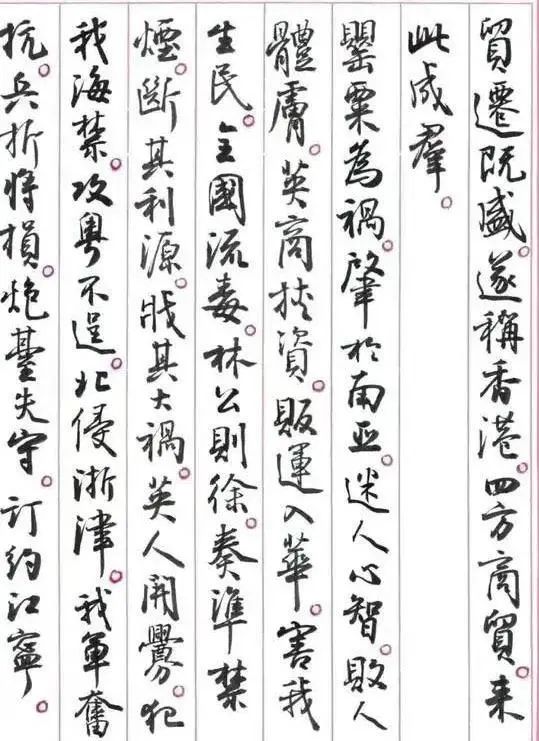 貿遷既盛。遂稱香港。四方商貿。来
此成羣。
罌粟為禍。肇於南亞。迷人心智。敗人
體膚。英商挾資。販運入華。害我
生民。全國流毒。林公則徐。奏準禁
煙。斷其利源。戕其大禍。英人開釁。犯
我海禁。攻粵不逞。北侵浙津。我軍奮
抗。兵折將損。炮臺失守。訂約江寧。